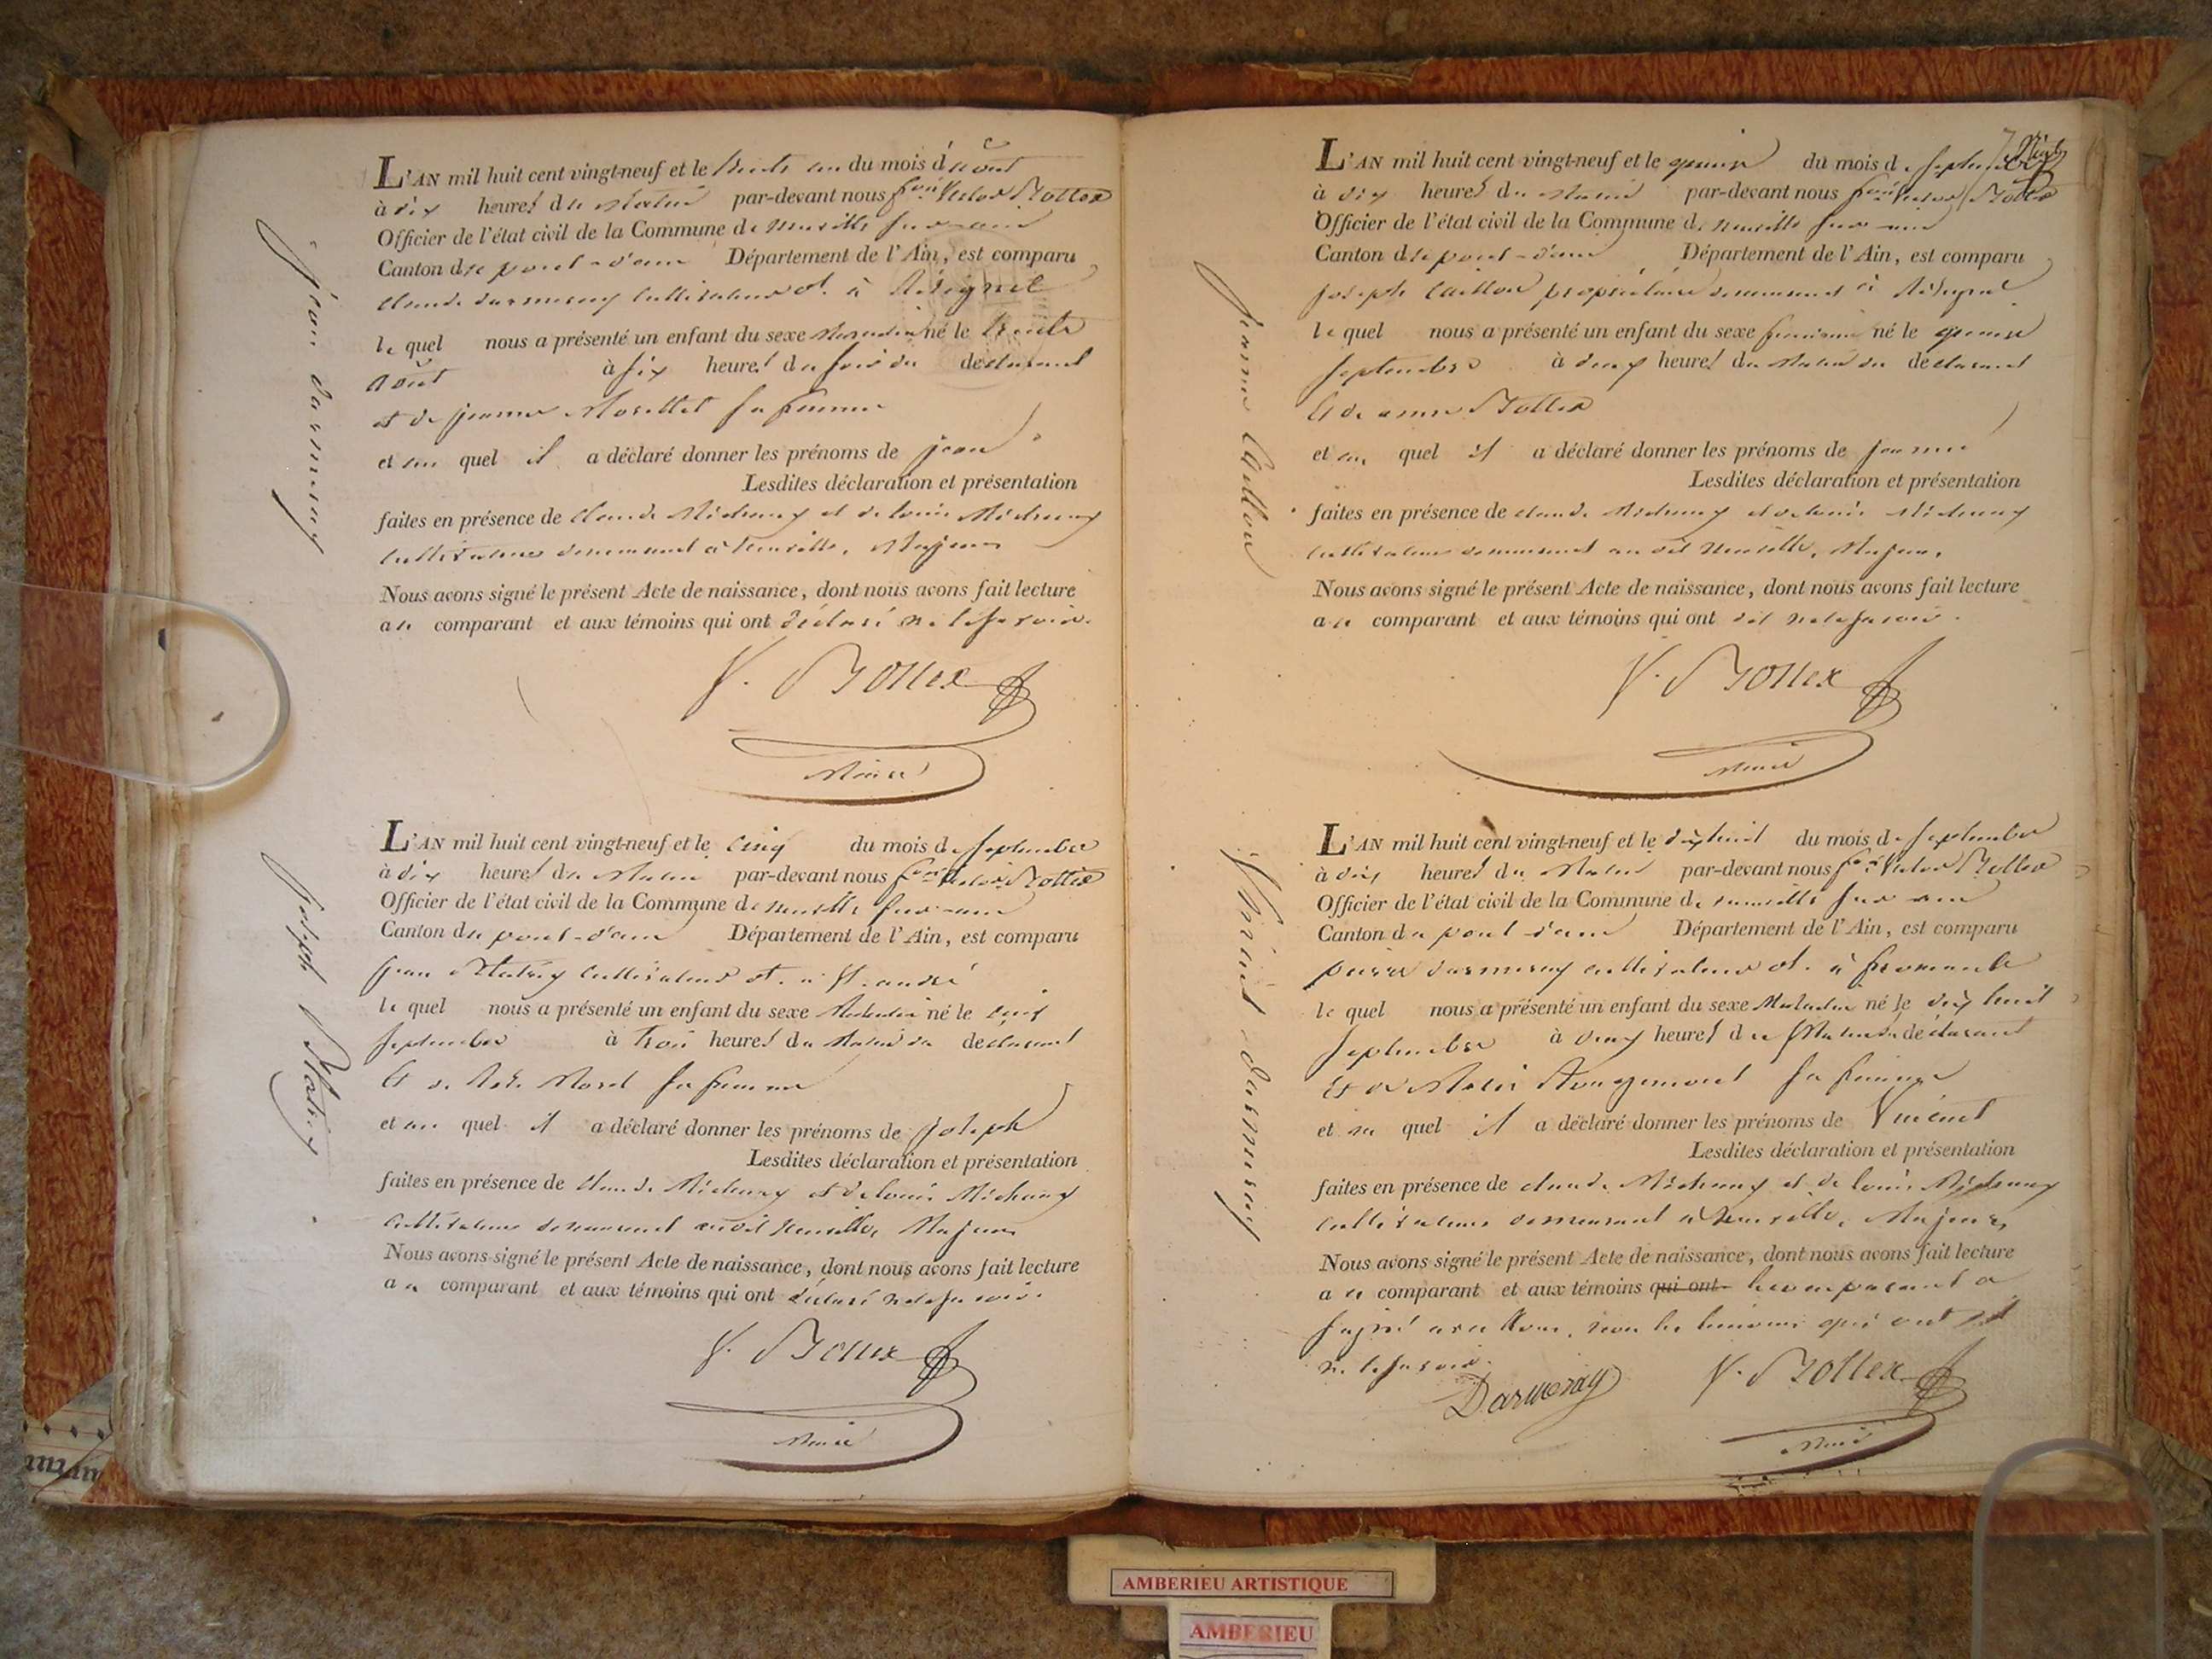 Jean darmeray
L'AN mil huit cent vingt-neuf et le trente un du mois d'août
à dix heures du Matin par-devant nous fçois Victor Bottex
Officier de l'état civil de la Commune de neuville sur ain
Canton de pont-d'ain Département de l'Ain, est comparu
claude darmeray cultivateur dt. à Résignel
le quel nous a présenté un enfant du sexe Masculin né le trente
Août à six heures du soir du déclarant
et de jeanne Morellet sa femme
et au quel il a déclaré donner les prénoms de jean
Lesdites déclaration et présentation
faites en présence de claude Michuny et de louis Michuny
cultivateurs demeurant à Neuville, Majeurs
Nous avons signé le présent Acte de naissance, dont nous avons fait lecture
au comparant et aux témoins qui ont déclaré ne le savoir.
V. Bottex
Maire
Joseph
L'AN mil huit cent vingt-neuf et le cinq du mois de septembre
à dix heures du Matin par-devant nous fçois Victor Bottex
Officier de l'état civil de la Commune de neuville sur ain
Canton du pont-d'ain Département de l'Ain, est comparu
jean cultivateur dt. à St. andré
le quel nous a présenté un enfant du sexe Masculin né le cinq
septembre à trois heures du Matin du déclarant
Et de Morel sa femme
et au quel il a déclaré donner les prénoms de joseph
Lesdites déclaration et présentation
faites en présence de claude Michuny et de louis Michuny
cultivateurs demeurant au dit neuville, Majeurs
Nous avons signé le présent Acte de naissance, dont nous avons fait lecture
au comparant et aux témoins qui ont déclaré ne le savoir.
V. Bottex
Maire
Jeanne Caillon
L'AN mil huit cent vingt-neuf et le quinze du mois de septembre
à dix heures du Matin par-devant nous fçois Victor Bottex
Officier de l'état civil de la Commune de neuville sur ain
Canton de pont-d'ain Département de l'Ain, est comparu
joseph Caillon propriétaire demeurant à Résignel
le quel nous a présenté un enfant du sexe féminin né le quinze
septembre à deux heures du Matin du déclarant
Et de anne Bottex
et au quel il a déclaré donner les prénoms de jeanne
Lesdites déclaration et présentation
faites en présence de claude Michuny et de louis Michuny
cultivateurs demeurant au dit neuville, Majeurs.
Nous avons signé le présent Acte de naissance, dont nous avons fait lecture
au comparant et aux témoins qui ont dit ne le savoir.
V. Bottex
Maire
Vincent Darmeray
L'AN mil huit cent vingt-neuf et le dix huit du mois de septembre
à dix heures du Matin par-devant nous fçois Victor Bottex
Officier de l'état civil de la Commune de neuville sur ain
Canton du pont-d'ain Département de l'Ain, est comparu
pierre darmeray cultivateur dt. à fromente
le quel nous a présenté un enfant du sexe Masculin né le dix huit
septembre à deux heures du Matin du déclarant
Et de Marie sa femme
et au quel il a déclaré donner les prénoms de Vincent
Lesdites déclaration et présentation
faites en présence de claude Michuny et de louis Michuny
cultivateurs demeurant à Neuville, Majeurs,
Nous avons signé le présent Acte de naissance, dont nous avons fait lecture
au comparant et aux témoins qui ont le comparant a
signé avec Nous, non les témoins qui ont dit
ne le savoir.
Darmeray V. Bottex
Maire
AMBERIEU ARTISTIQUE
AMBERIEU